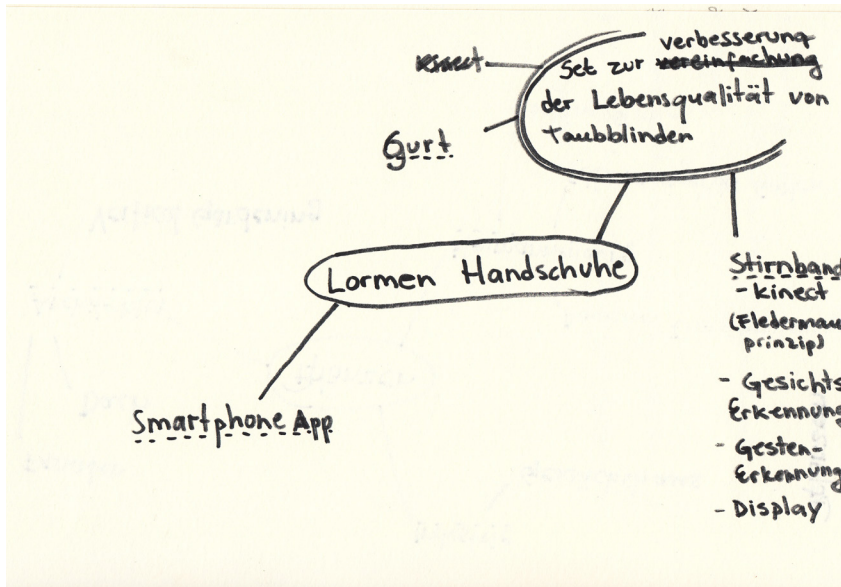 verbesserung
Set zur vereinfachung
der Lebensqualität von
Taubblinden
Gurt
Lormen Handschuhe
Smartphone App
Stirnband
- kinect
(Fledermau
prinzip)
- Gesichts
Erkennung
- Gesten-
Erkennung
- Display